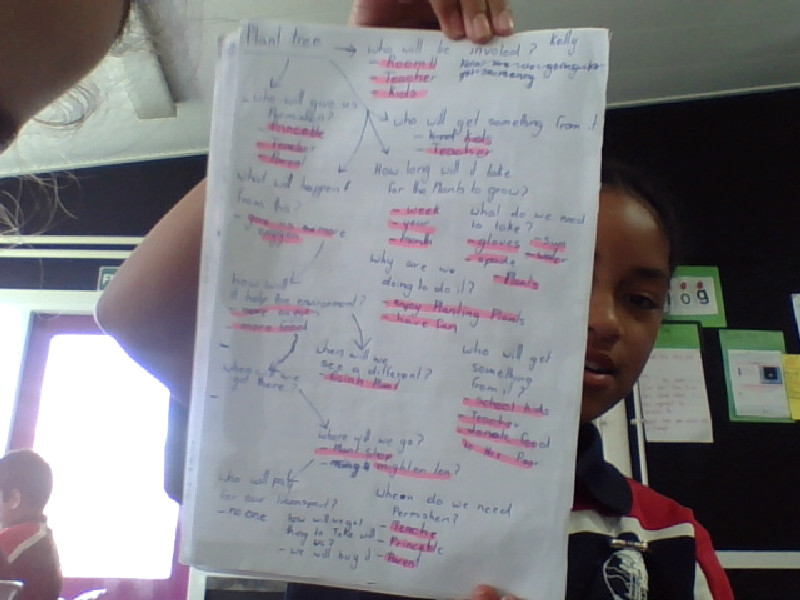 Plant tree
→ who will be involed? Kelly
- Room 11
- Teacher
- Kids
- who will give us
Permishen?
- Princable
- Teacher
- Parent
→ who will get something from it
- Kids
- Teacher
what will happen
from this?
- give us more
oxygen
How long will it take
for the Plants to grow?
- week
- year
- month
what do we need
to take?
- gloves
- spade
- sign
- water
- Plants
Why are we
doing to do it?
- enjoy Planting Plants
- have fun
how will
it help the enviroment?
- more oxygen
- more food
when will we
see a different?
who will get
something
from it?
- School kids
- Teacher
- donate food
to the Poor
where will we go?
- Plant shop
- might en lea?
who will pay
for our
- no one
how will we get
thing to Take will
us?
- we will buy it
When do we need
Permishen?
- Teache
- Princable
- Parent
og